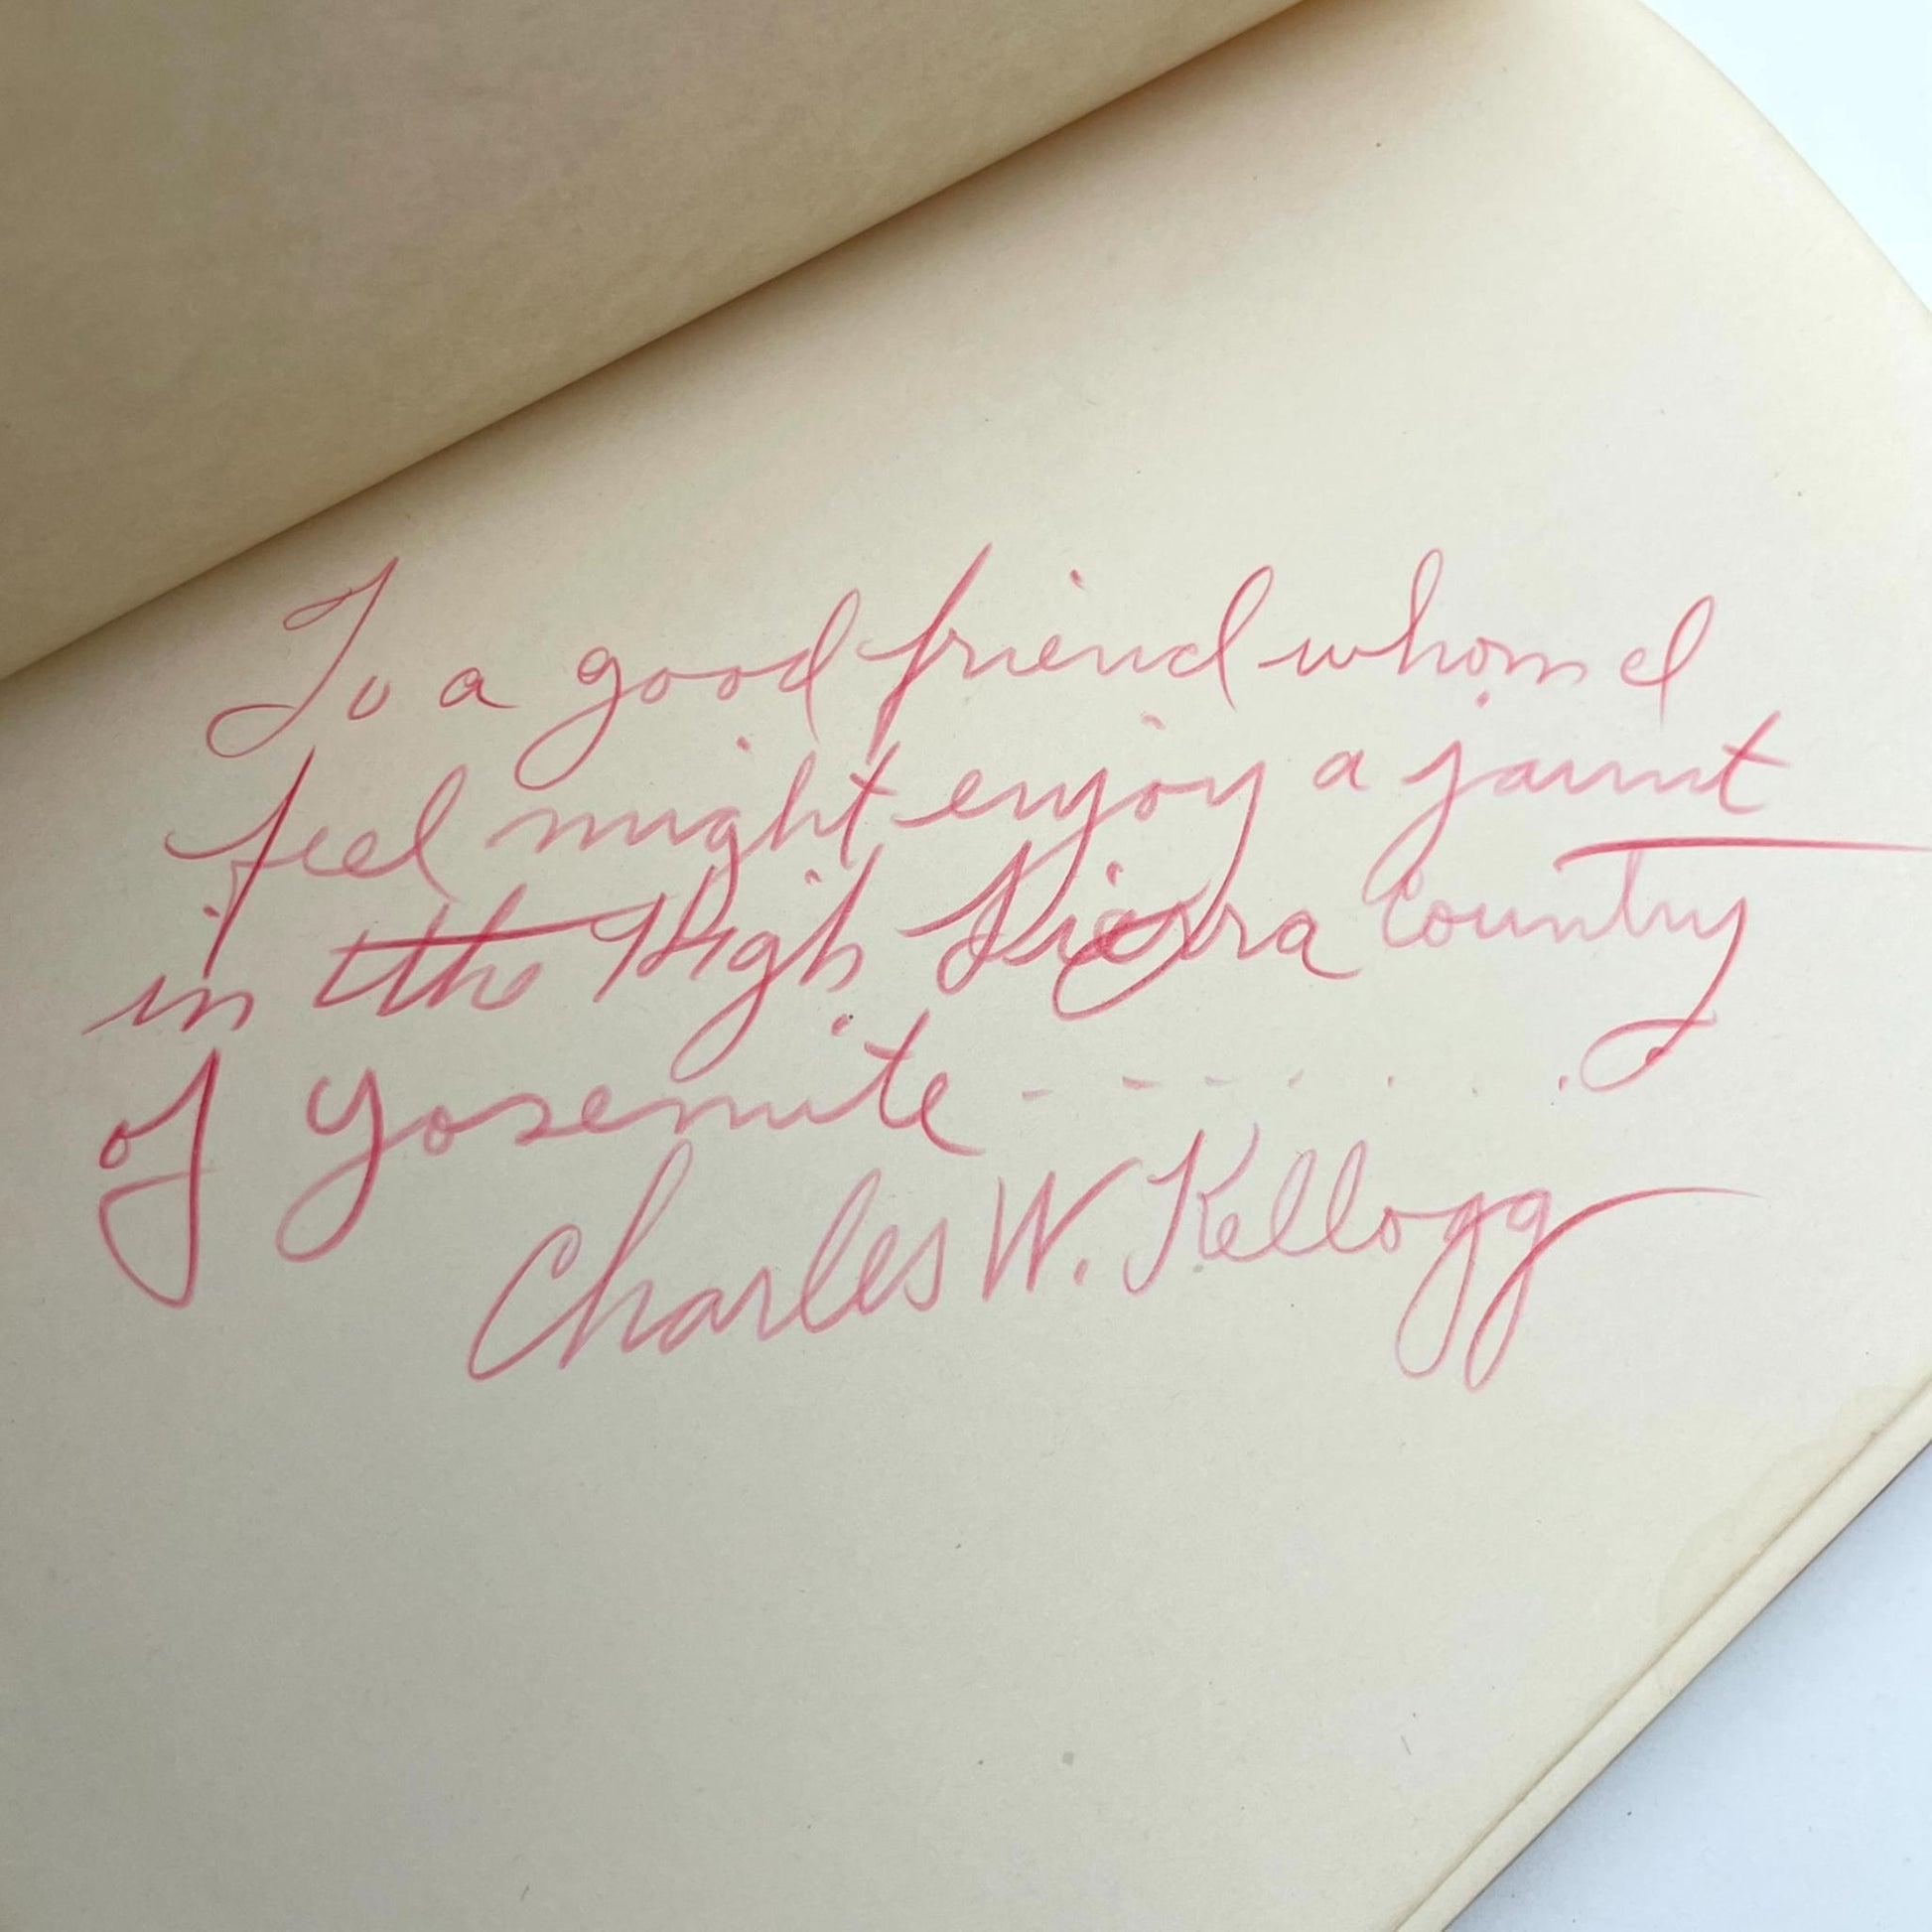 To a good friend whom I
feel might enjoy a jaunt
in the High Sierra Country
of Yosemite - - - - . . .
Charles W. Kellogg